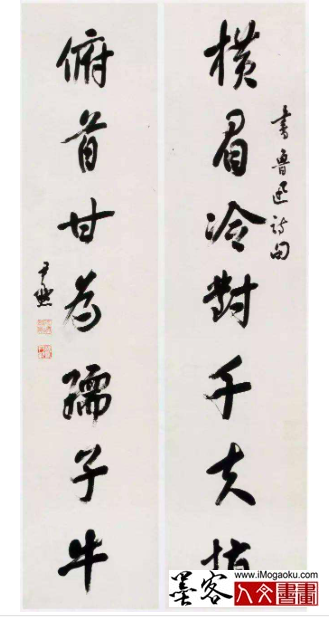 橫眉冷對千夫指
書魯迅詩句
俯首甘為孺子牛
尹默
www.iMogaoku.com
墨客